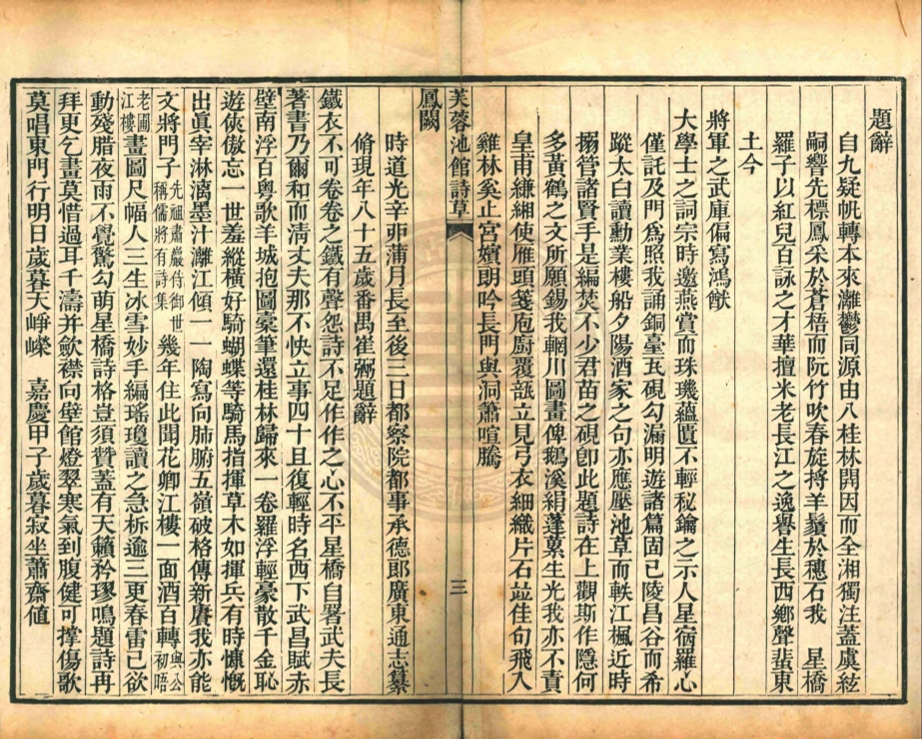 題辭
自九疑帆轉本來灕鬱同源由八桂林開因而全湘獨注蓋虞絃
嗣響先標鳳采於蒼梧而阮竹吹春旋捋羊鬚於穗石我 星橋
羅子以紅兒百詠之才華擅米老長江之逸譽生長西鄉聲蜚東
土今
將軍之武庫偏寫鴻猷
大學士之詞宗時邀燕賞而珠璣蘊匱不輕秘鑰之示人星宿羅心
僅託及門爲照我誦銅臺瓦硯勾漏明遊諸篇固已陵昌谷而希
蹤太白讀勳業樓船夕陽酒家之句亦應壓池草而軼江楓近時
搦管諸賢手是編焚不少君苗之硯卽此題詩在上觀斯作隱何
多黃鶴之文所願錫我輞川圖畫俾鵝溪絹蓬蓽生光我亦不責
皇甫縑緗使雁頭箋庖廚覆瓿立見弓衣細織片石並佳句飛入
雞林奚止宮嬪朗吟長門與洞簫喧騰
芙蓉池館詩草
三
鳳闕
時道光辛卯蒲月長至後三日都察院都事承德郎廣東通志纂
脩現年八十五歲番禺崔弼題辭
鐵衣不可卷卷之鐵有聲怨詩不足作作之心不平星橋自署武夫長
著書乃爾和而清丈夫那不怏立事四十且復輕時名西下武昌賦赤
壁南浮百粵歌羊城抱圖橐筆還桂林歸來一卷羅浮輕豪散千金恥
遊俠傲忘一世羞縱橫好騎蝴蝶等騎馬指揮草木如揮兵有時慷慨
出眞宰淋漓墨汁灕江傾一一陶寫向肺腑五嶺破格傳新賡我亦能
文將門子先祖肅嚴侍御世稱儒將有詩集幾年住此聞花卿江樓一面酒百轉與公初晤
老圃江樓畫圖尺幅人三生冰雪妙手編瑤瓊讀之急柝逾三更春雷已欲
動殘腊夜雨不覺驚勾萌星橋詩格豈須贊蓋有天籟矜璆鳴題詩再
拜更乞畫莫惜過耳千濤并歛襟向壁館燈翠寒氣到腹健可撑傷歌
莫唱東門行明日歲暮天崢嶸 嘉慶甲子歲暮寂坐蕭齋値